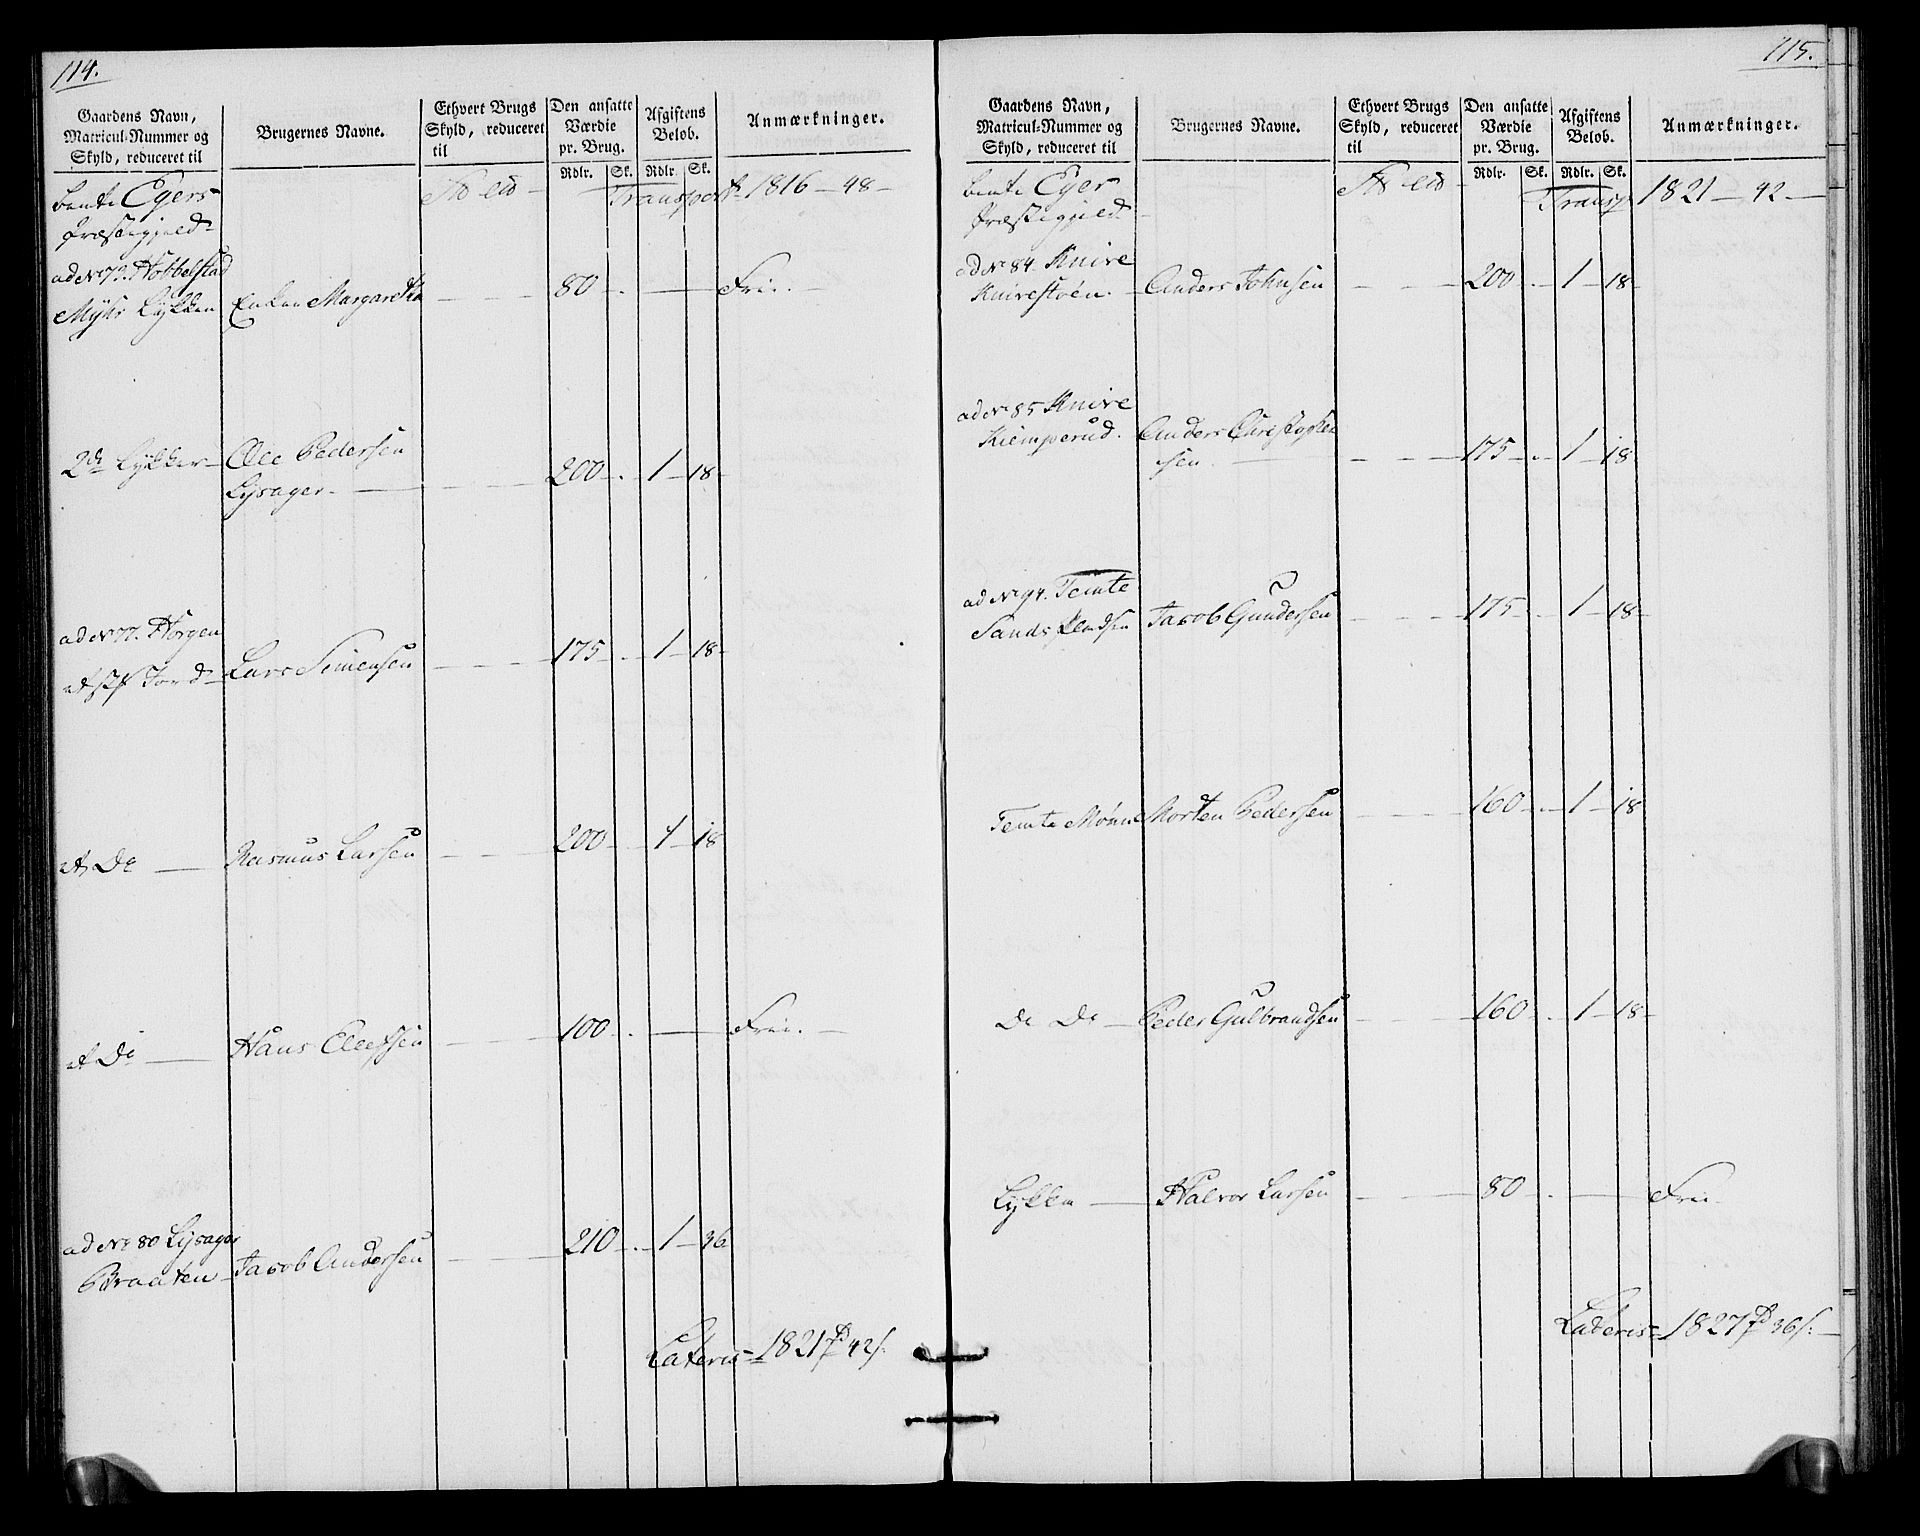 114.
Gaardens Navn,
Matricul-Nummer og
Skyld, reduceret til
Brugernes Navne.
Ethvert Brugs
Skyld, reduceret
til
Den ansatte
Værdie
pr. Brug.
Rdlr. Sk.
Afgiftens
Beløb.
Rdlr. Sk.
Anmærkninger.
Egers
Præstegjeld
Transport 1816 - 48 -
ad No 73. Hobbelstad
Myhr Lykken Enken Margaretha - - - 80 - . - Frie. -
2de Lykker - Ole Pedersen
Lysager. - - - 200 - . 1 - 18 -
ad No 77. Horgen
Lars Simensen - - - 175 - . 1 - 18 -
De - Rasmus Larsen - - - 200 - . 1 - 18
De - Hans Olefsen - - - 100 - . - Frie. -
ad No 80 Lysager
Braaten - Jacob Andersen - - - 210 - . 1 - 36.
Lateris - 1821 42
115.
Gaardens Navn,
Matricul-Nummer og
Skyld, reduceret til
Brugernes Navne.
Ethvert Brugs
Skyld, reduceret
til
Den ansatte
Værdie
pr. Brug.
Rdlr. Sk.
Afgiftens
Beløb.
Rdlr. Sk.
Anmærkninger.
Eger
Præstegjeld
Transp 1821 - 42 -
ad No 84. Knive
Knivestøen. - Anders Johnsen - - - 200 - . 1 - 18 -
ad No 85 Knive
Kiemperud. Anders Christophersen
- - - 175 - . 1 - 18
ad No 94. Temte
Jacob Gundersen - - - 175 - . 1 - 18 -
Temte Morten Pedersen - - - 160 - . 1 - 18
De De - Peder Gulbrandsen - - - 160 - . 1 - 18 -
Lykken - Halvor Larsen - - - 80 - . - Frie
Lateris - 1827 36